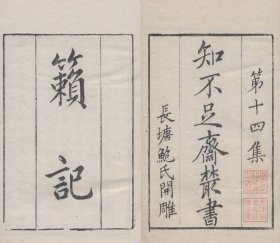 第十四集
知不足齋叢書
長塘鮑氏開雕
籟記